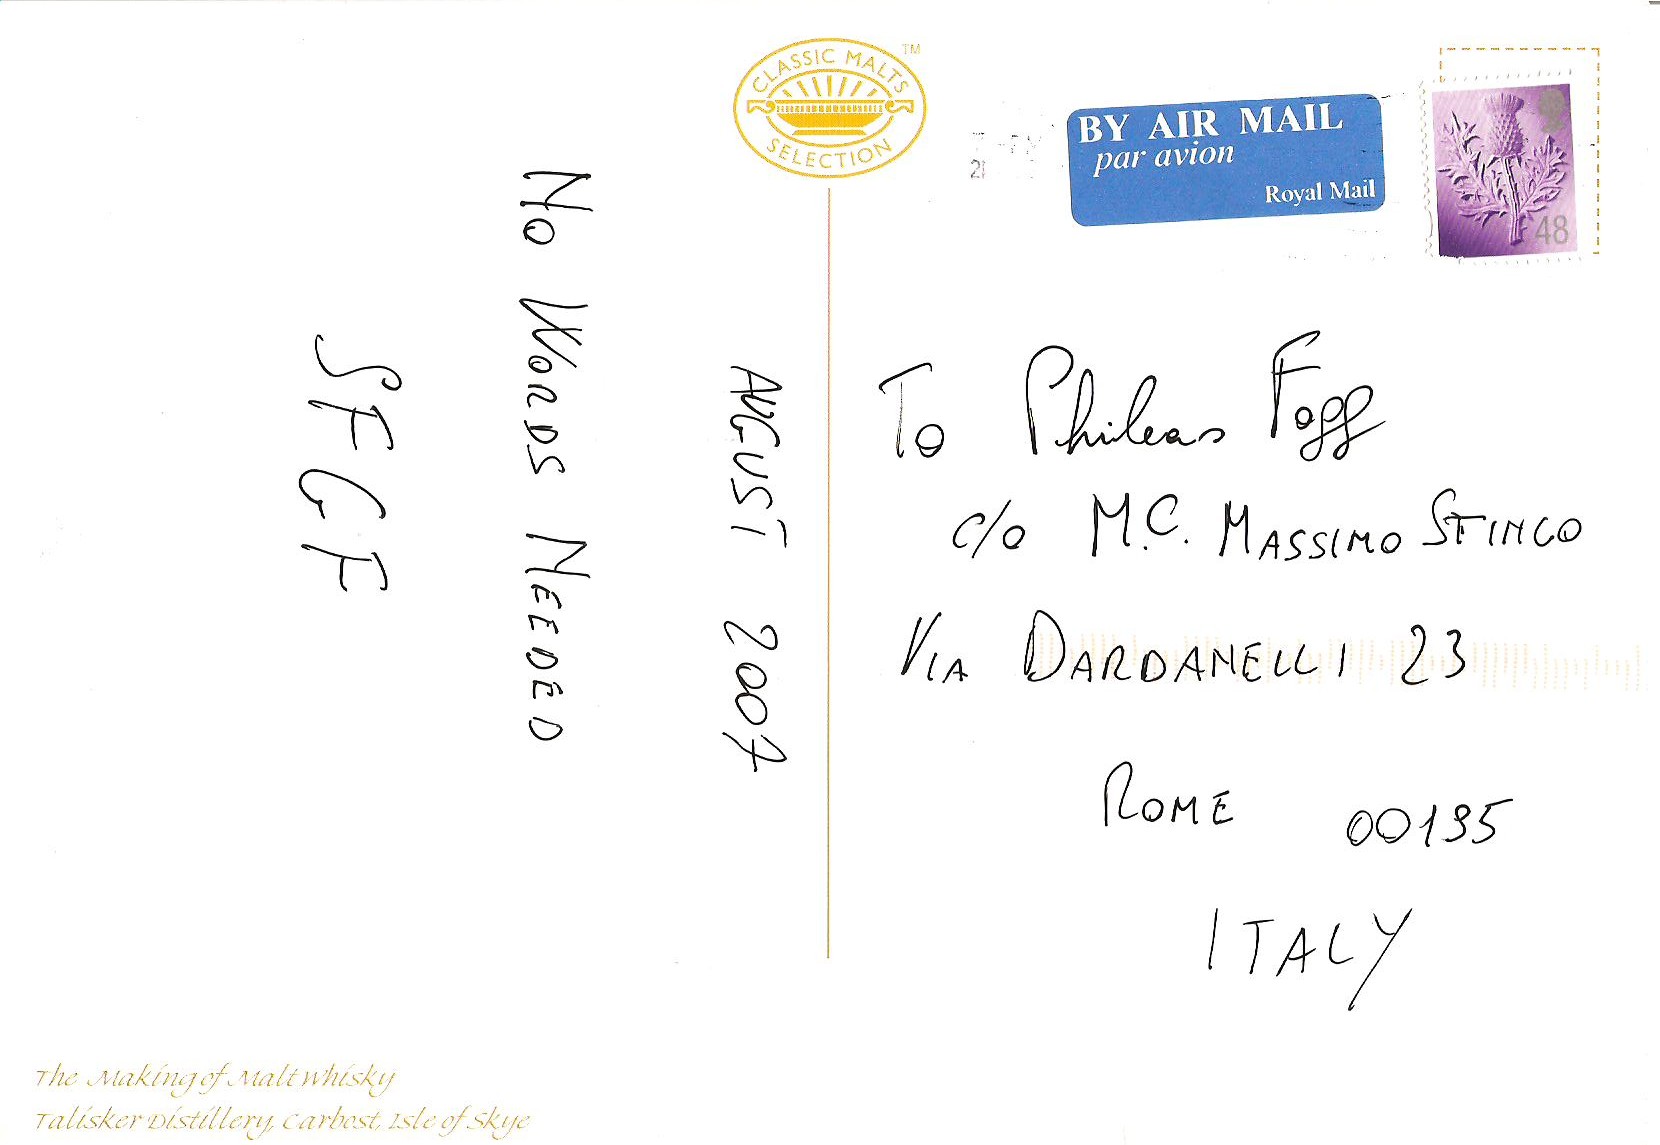 CLASSIC MALTS
SELECTION
TM
AUGUST 2007
No Words Needed
SFGF
BY AIR MAIL
par avion
Royal Mail
48
To Phileas Fogg
c/o M.C. MASSIMO STINGO
VIA DARDANELLI 23
ROME 00195
ITALY
The Making of Malt Whisky
Talisker Distillery, Carbost, Isle of Skye